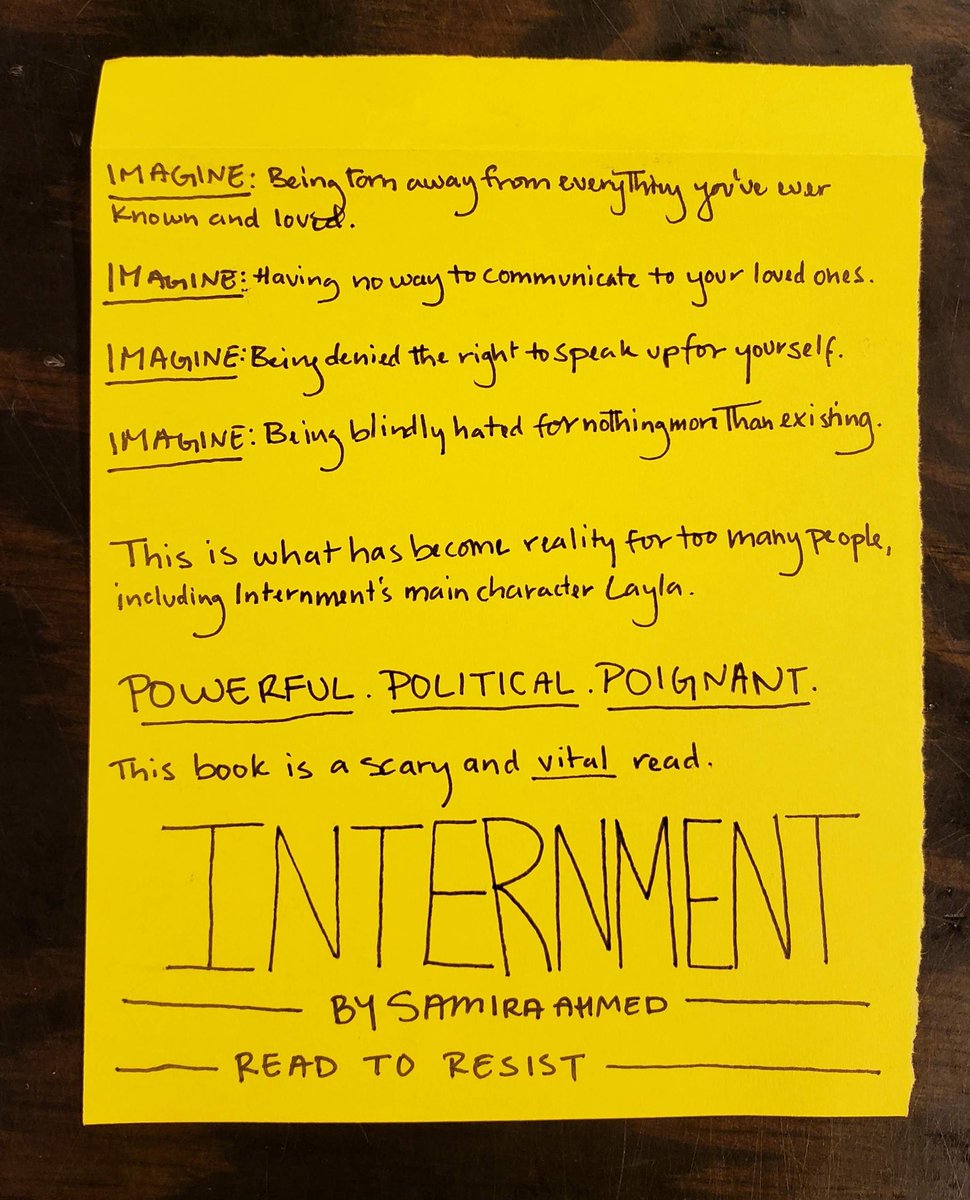 IMAGINE: Being torn away from everything you've ever
known and loved.
IMAGINE: Having no way to communicate to your loved ones.
IMAGINE: Being denied the right to speak up for yourself.
IMAGINE: Being blindly hated for nothing more Than existing.
This is what has become reality for too many people,
including Internment's main character Layla.
POWERFUL. POLITICAL. POIGNANT.
This book is a scary and vital read.
INTERNMENT
BY SAMIRA AHMED
READ TO RESIST